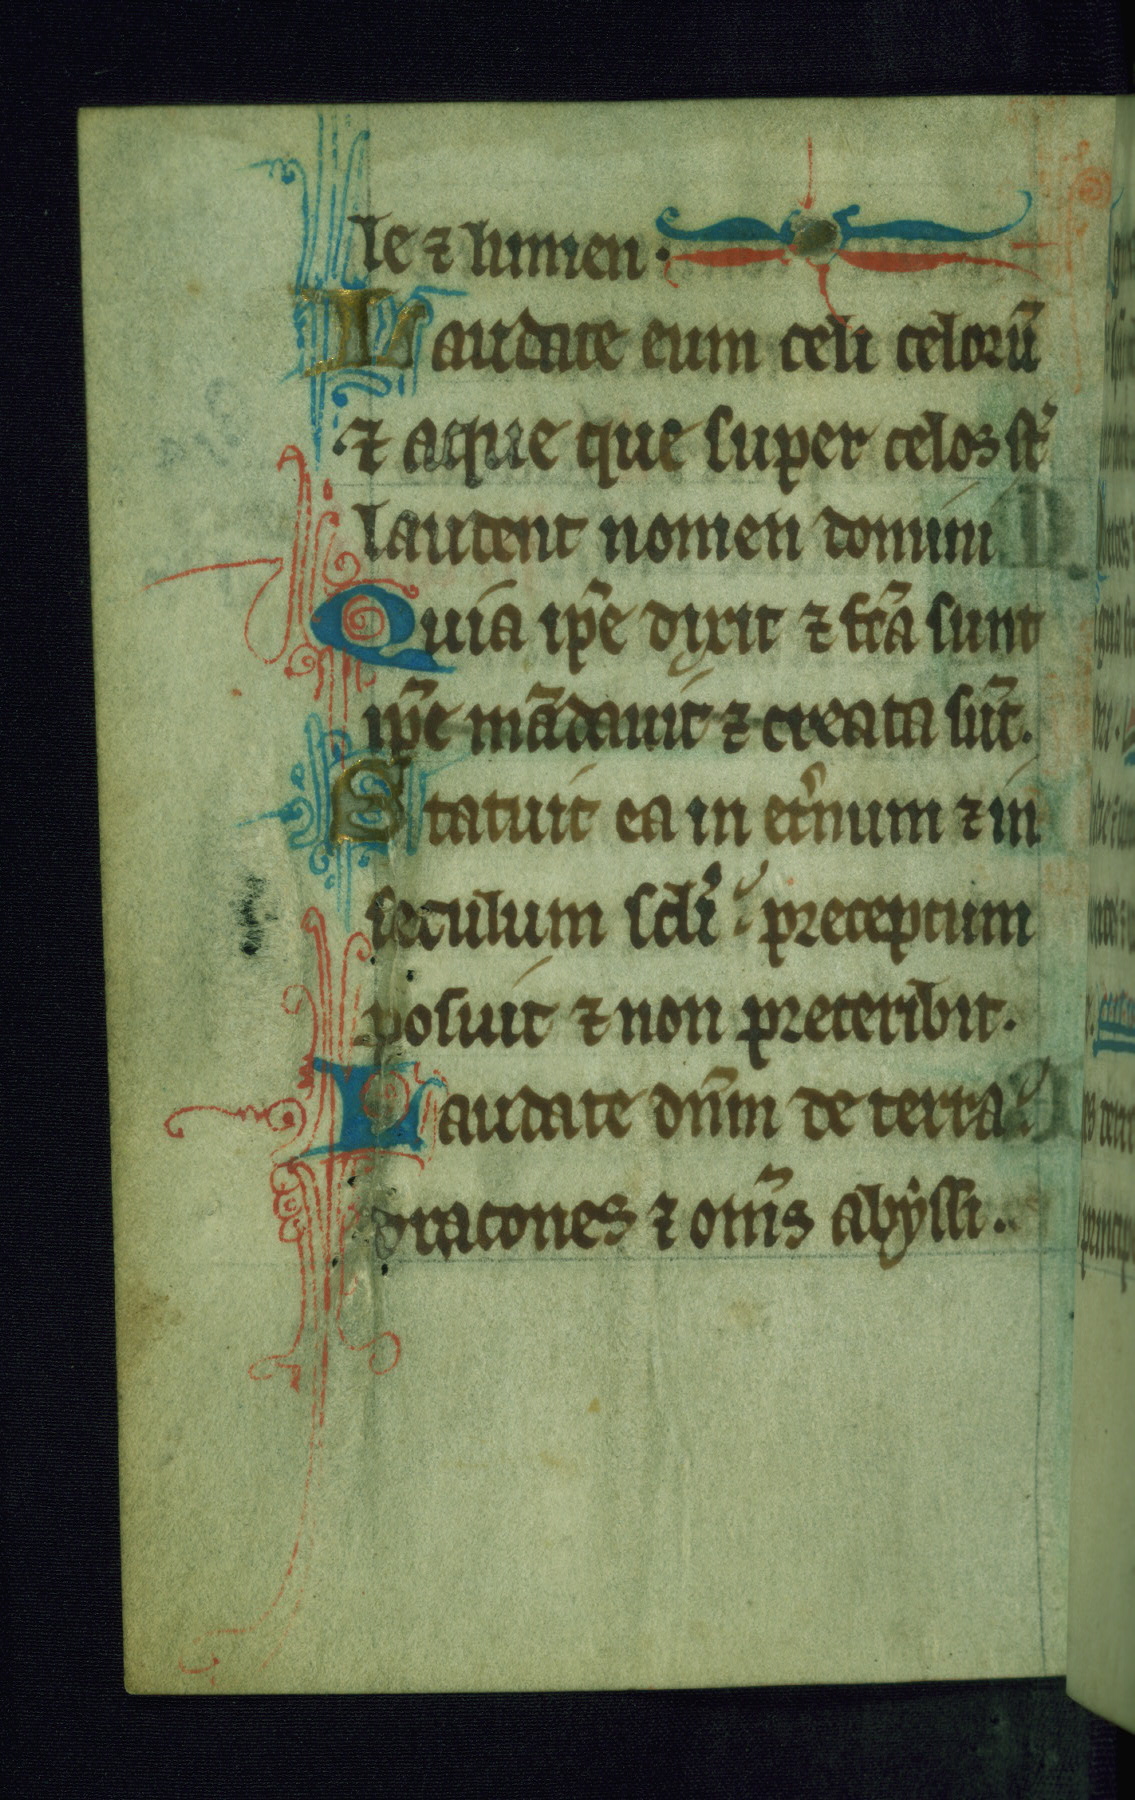 le ⁊ lumen.
Laudate eum celi celorū
⁊ aque que super celos st̄
laudent nomen domini
Quia ip̄e dixit ⁊ fc̄a sunt
ip̄e mādauit ⁊ creata sūt.
Statuit ea in et̄num ⁊ in
seculum scl̄i preceptum
posuit ⁊ non preteribit.
Laudate dn̄m de terra
dracones ⁊ om̄s abyssi.